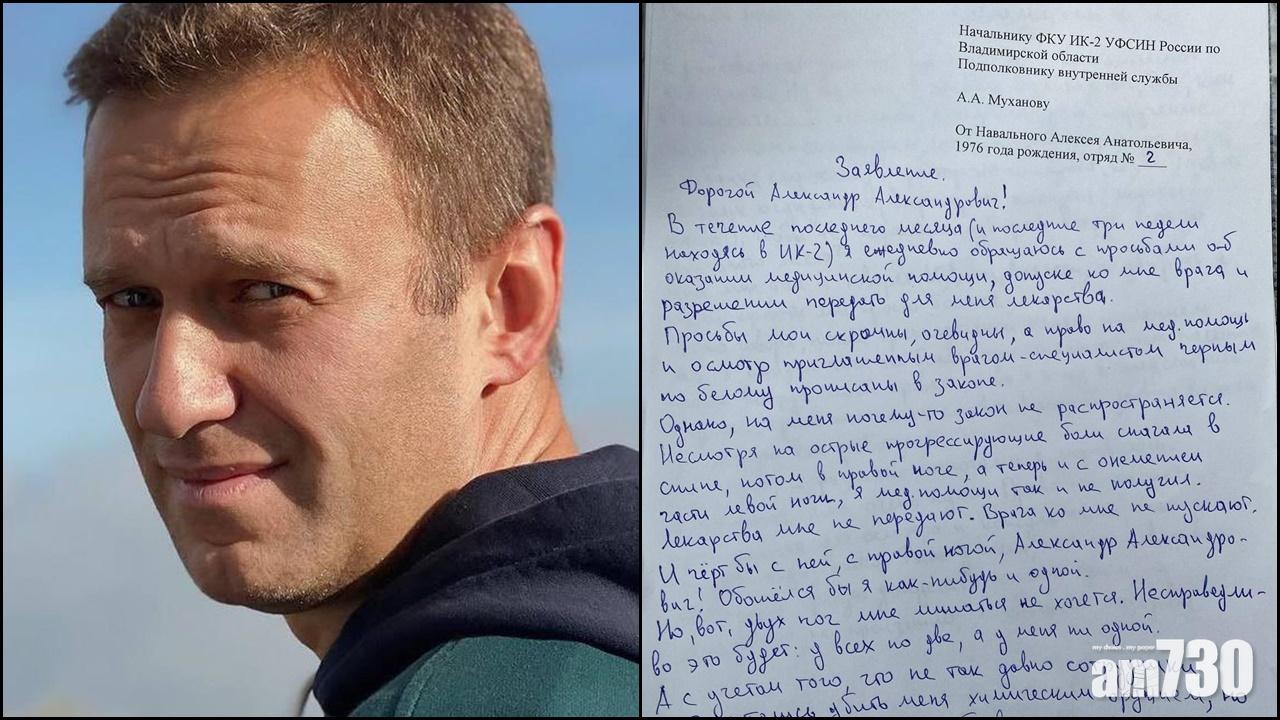 Начальнику ФКУ ИК-2 УФСИН России по
Владимирской области
Подполковнику внутренней службы
А.А. Муханову
От Навального Алексея Анатольевича,
1976 года рождения, отряд № 2
Заявление.
Дорогой Александр Александрович!
В течение последнего месяца (и последние три недели
находясь в ИК-2) я ежедневно обращаюсь с просьбами об
оказании медицинской помощи, допуске ко мне врача и
разрешении передать для меня лекарства.
Просьбы мои скромны, очевидны, а право на мед.помощь
и осмотр приглашенным врачом-специалистом черным
по белому прописаны в законе.
Однако, на меня почему-то закон не распространяется.
Несмотря на острые прогрессирующие боли сначала в
спине, потом в правой ноге, а теперь и с онемением
части левой ноги, я мед.помощи так и не получил.
Лекарства мне не передают. Врача ко мне не пускают.
И чёрт бы с ней, с правой ногой, Александр Александро-
вич! Обошёлся бы я как-нибудь и одной.
Но, вот, двух ног мне лишаться не хочется. Несправедли-
во это будет: у всех по две, а у меня ни одной.
А с учетом того, что не так давно
убить меня химическим оружием, но
my choice . my paper
am730